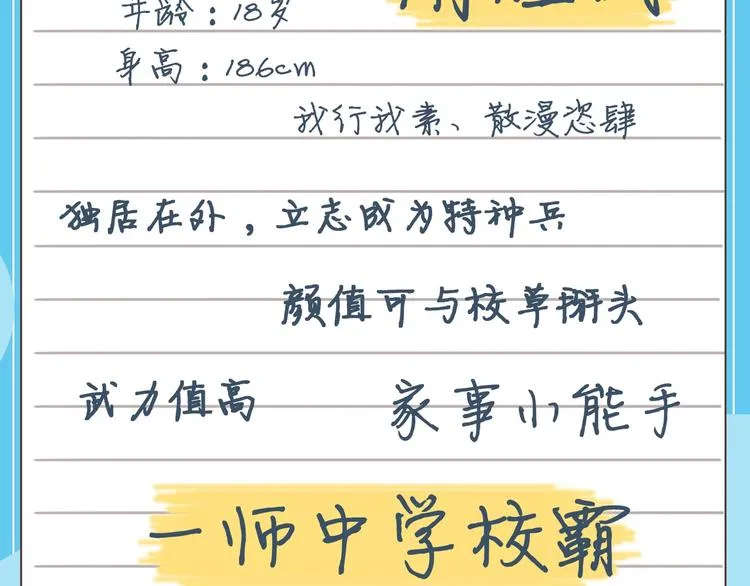 年龄：18岁
身高：186cm
我行我素、散漫恣肆
独居在外，立志成为特种兵
颜值可与校草掰头
武力值高
家事小能手
一师中学校霸